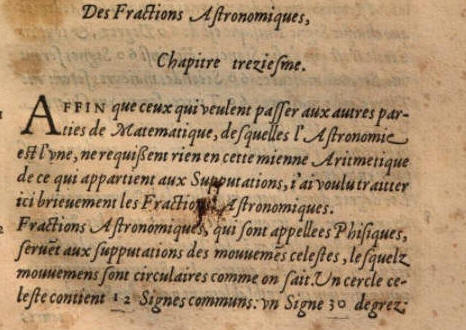 Des Fractions Astronomiques,
Chapitre treziesme.
AFFIN que ceux qui veulent passer aux autres par-
ties de Matematique, desquelles l'Astronomie
est l'vne, ne requißent rien en cette mienne Aritmetique
de ce qui appartient aux Supputations, i'ai voulu traitter
ici brieuement les Fractions Astronomiques.
Fractions Astronomiques, qui sont appellees Phisiques,
seruēt aux supputations des mouuemēs celestes, lesquelz
mouuemens sont circulaires comme on sait. Un cercle ce-
leste contient 12 Signes communs: vn Signe 30 degrez: